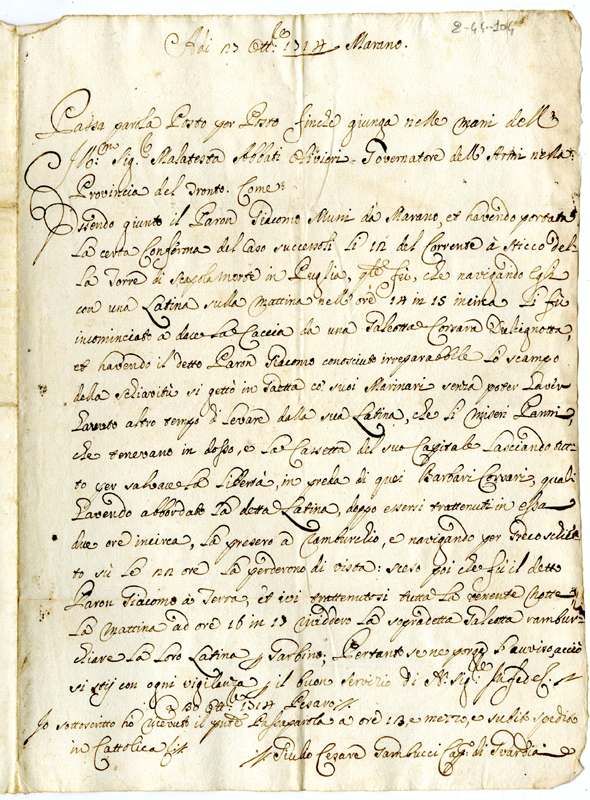 2-44-104
Adi 23 Ott.e 1714 Marano.
Passa parola Posto per Posto finche giunga nelle mani dell'
Ill.mo Sig.r Malatesta Abbati Olivieri Governatore dell'Armi nella
Provincia del Tronto. Come
Essendo giunto il Paron Giacomo Muni da Marano, et havendo portata
la certa Conforma del Caso successoli li 12 del Corrente à
La Torre di in Puglia, fù, che navigando Egli
con una Latina sulla mattina nell'ore 14 in 15 incirca li fù
incominciato à dare la Caccia da una Galeotta Corsara Dulcignotta,
et havendo il detto Paron Giacomo conosciuto irreparabbile lo scampo
della schiavitù si gettò in co' suoi Marinari senza poter haver
havuto altro tempo di levare dalla sua Latina, che li miseri Panni,
che tenevano in dosso, e la Cassetta del suo Capitale lasciando tut-
to per salvare la libertà, in preda di quei Barbari Corsari, quali
havendo abbordato la detta Latina, doppo essersi trattenuti in essa
due ore incirca, la presero à Rimburchio, e navigando per Greco
to sù le 22 ore la perderono di vista: sceso poi che fù il detto
Paron Giacomo à Terra, et ivi trattenutosi tutta la notte
La mattina ad ore 16 in 17 viddero la sopradetta Galeotta rambur-
chiare la loro Latina p Garbino; Pertanto se ne porge l'avviso acciò
si stij con ogni vigilanza p il buon servizio di N. Sig.re
Ott.e 1714 Pesaro
Io sottoscritto ho ricevuto il pnte Passaparola a ore 18 e mezzo, e subito spedito
in Cattolica
Giulio Cesare Gambucci Cap. di Guardia